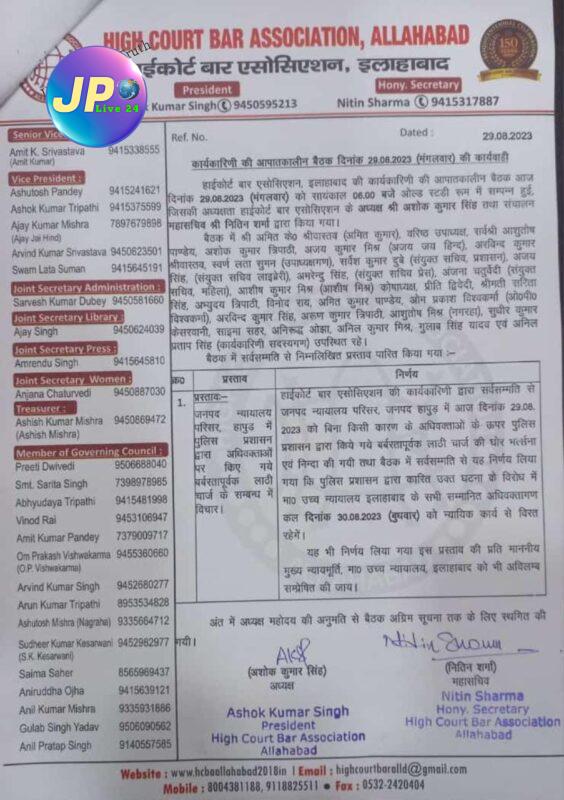 HIGH COURT BAR ASSOCIATION, ALLAHABAD
हाईकोर्ट बार एसोसिएशन, इलाहाबाद
Truth
JP
Live 24
150
President
Hony. Secretary
Kumar Singh 9450595213
Nitin Sharma 9415317887
Ref. No.
Dated : 29.08.2023
Senior Vice
Amit K. Srivastava 9415338555
(Amit Kumar)
Vice President :
Ashutosh Pandey 9415241621
Ashok Kumar Tripathi 9415375599
Ajay Kumar Mishra 7897679898
(Ajay Jai Hind)
Arvind Kumar Srivastava 9450623501
Swarn Lata Suman 9415645191
Joint Secretary Administration :
Sarvesh Kumar Dubey 9450581660
Joint Secretary Library :
Ajay Singh 9450624039
Joint Secretary Press :
Amrendu Singh 9415645810
Joint Secretary Women :
Anjana Chaturvedi 9450887030
Treasurer :
Ashish Kumar Mishra 9450869472
(Ashish Mishra)
Member of Governing Council :
Preeti Dwivedi 9506688040
Smt. Sarita Singh 7398978985
Abhyudaya Tripathi 9415481998
Vinod Rai 9453106947
Amit Kumar Pandey 7379009717
Om Prakash Vishwakarma 9455360660
(O.P. Vishwakarma)
Arvind Kumar Singh 9452680277
Arun Kumar Tripathi 8953534828
Ashutosh Mishra (Nagraha) 9335664712
Sudheer Kumar Kesarwani 9452982977
(S.K. Kesarwani)
Saima Saher 8565969437
Aniruddha Ojha 9415639121
Anil Kumar Mishra 9335931886
Gulab Singh Yadav 9506090562
Anil Pratap Singh 9140557585
कार्यकारिणी की आपातकालीन बैठक दिनांक 29.08.2023 (मंगलवार) की कार्यवाही
हाईकोर्ट बार एसोसिएशन, इलाहाबाद की कार्यकारिणी की आपातकालीन बैठक आज
दिनांक 29.08.2023 (मंगलवार) को सायंकाल 06.00 बजे ओल्ड स्टडी रूम में सम्पन्न हुई,
जिसकी अध्यक्षता हाईकोर्ट बार एसोसिएशन के अध्यक्ष श्री अशोक कुमार सिंह तथा संचालन
महासचिव श्री नितिन शर्मा द्वारा किया गया।
बैठक में श्री अमित के० श्रीवास्तव (अमित कुमार), वरिष्ठ उपाध्यक्ष, सर्वश्री आशुतोष
पाण्डेय, अशोक कुमार त्रिपाठी, अजय कुमार मिश्र (अजय जय हिन्द), अरविन्द कुमार
श्रीवास्तव, स्वर्ण लता सुमन (उपाध्यक्षगण), सर्वेश कुमार दुबे (संयुक्त सचिव, प्रशासन), अजय
सिंह, (संयुक्त सचिव लाइब्रेरी), अमरेन्दु सिंह, (संयुक्त सचिव प्रेस), अंजना चतुर्वेदी (संयुक्त
सचिव, महिला), आशीष कुमार मिश्र (आशीष मिश्र) कोषाध्यक्ष, प्रीति द्विवेदी, श्रीमती सरिता
सिंह, अभ्युदय त्रिपाठी, विनोद राय, अमित कुमार पाण्डेय, ओम प्रकाश विश्वकर्मा (ओ०पी०
विश्वकर्मा), अरविन्द कुमार सिंह, अरूण कुमार त्रिपाठी, आशुतोष मिश्र (नगरहा), सुधीर कुमार
केसरवानी, साइमा सहर, अनिरूद्ध ओझा, अनिल कुमार मिश्र, गुलाब सिंह यादव एवं अनिल
प्रताप सिंह (कार्यकारिणी सदस्यगण) उपस्थित रहे।
बैठक में सर्वसम्मति से निम्नलिखित प्रस्ताव पारित किया गया :-
क्र० प्रस्ताव निर्णय
1. प्रस्तावः-
जनपद न्यायालय
परिसर, हापुड़ में
पुलिस प्रशासन
द्वारा अधिवक्ताओं
पर किए गये
बर्बरतापूर्वक लाठी
चार्ज के सम्बन्ध में
विचार।
हाईकोर्ट बार एसोसिएशन की कार्यकारिणी द्वारा सर्वसम्मति से
जनपद न्यायालय परिसर, जनपद हापुड़ में आज दिनांक 29.08.
2023 को बिना किसी कारण के अधिवक्ताओं के ऊपर पुलिस
प्रशासन द्वारा किये गये बर्बरतापूर्वक लाठी चार्ज की घोर भर्त्सना
एवं निन्दा की गयी तथा बैठक में सर्वसम्मति से यह निर्णय लिया
गया कि पुलिस प्रशासन द्वारा कारित उक्त घटना के विरोध में
मा० उच्च न्यायालय इलाहाबाद के सभी सम्मानित अधिवक्तागण
कल दिनांक 30.08.2023 (बुधवार) को न्यायिक कार्य से विरत
रहेगें।
यह भी निर्णय लिया गया इस प्रस्ताव की प्रति माननीय
मुख्य न्यायमूर्ति, मा० उच्च न्यायालय, इलाहाबाद को भी अविलम्ब
सम्प्रेषित की जाय।
अंत में अध्यक्ष महोदय की अनुमति से बैठक अग्रिम सूचना तक के लिए स्थगित की
गयी।
Nitin Sharma
(अशोक कुमार सिंह)
अध्यक्ष
(नितिन शर्मा)
महासचिव
Ashok Kumar Singh
President
High Court Bar Association
Allahabad
Nitin Sharma
Hony. Secretary
High Court Bar Association
Allahabad
Website : www.hcbaallahabad2018in | Email : highcourtbaralld@gmail.com
Mobile : 8004381188, 9118825511 • Fax : 0532-2420404